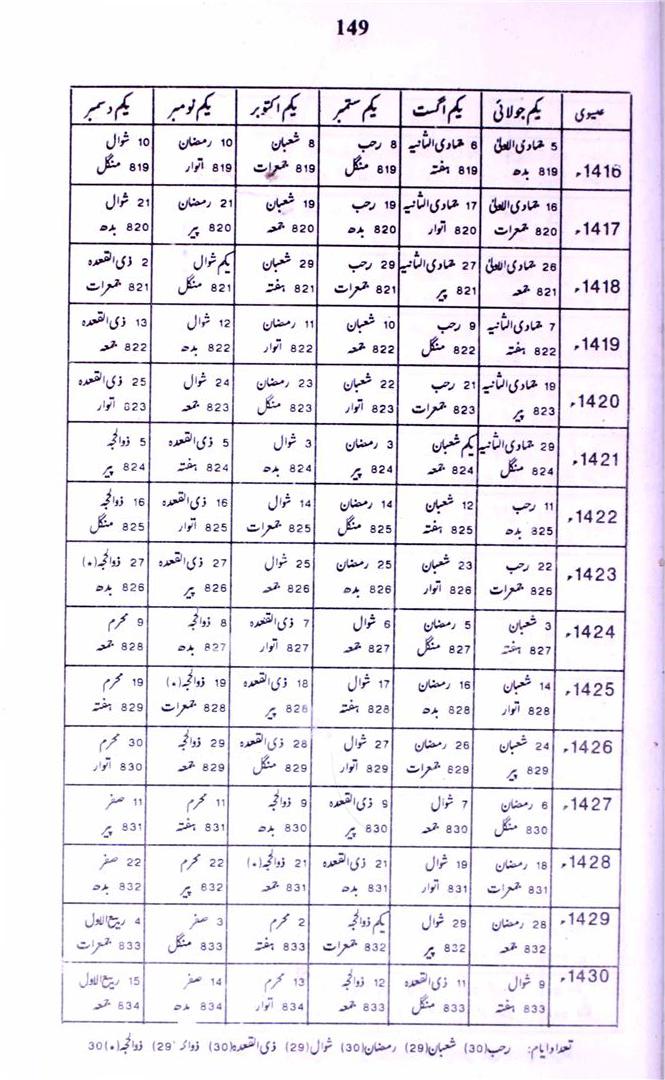 149
عیسوی یکم جولائی یکم اگست یکم ستمبر یکم اکتوبر یکم نومبر یکم دسمبر
1416ء 5 جمادی الاولیٰ 6 جمادی الثانیہ 8 رجب 8 شعبان 10 رمضان 10 شوال
819 بدھ 819 ہفتہ 819 منگل 819 جمعرات 819 اتوار 819 منگل
1417ء 16 جمادی الاولیٰ 17 جمادی الثانیہ 19 رجب 19 شعبان 21 رمضان 21 شوال
820 جمعرات 820 اتوار 820 بدھ 820 جمعہ 820 پیر 820 بدھ
1418ء 26 جمادی الاولیٰ 27 جمادی الثانیہ 29 رجب 29 شعبان یکم شوال 2 ذی القعدہ
821 جمعہ 821 پیر 821 جمعرات 821 ہفتہ 821 منگل 821 جمعرات
1419ء 7 جمادی الثانیہ 9 رجب 10 شعبان 11 رمضان 12 شوال 13 ذی القعدہ
822 ہفتہ 822 منگل 822 جمعہ 822 اتوار 822 بدھ 822 جمعہ
1420ء 19 جمادی الثانیہ 21 رجب 22 شعبان 23 رمضان 24 شوال 25 ذی القعدہ
823 پیر 823 جمعرات 823 اتوار 823 منگل 823 جمعہ 823 اتوار
1421ء 29 جمادی الثانیہ یکم شعبان 3 رمضان 3 شوال 5 ذی القعدہ 5 ذوالحجہ
824 منگل 824 جمعہ 824 پیر 824 بدھ 824 ہفتہ 824 پیر
1422ء 11 رجب 12 شعبان 14 رمضان 14 شوال 16 ذی القعدہ 16 ذوالحجہ
825 بدھ 825 ہفتہ 825 منگل 825 جمعرات 825 اتوار 825 منگل
1423ء 22 رجب 23 شعبان 25 رمضان 25 شوال 27 ذی القعدہ 27 ذوالحجہ(٭)
826 جمعرات 826 اتوار 826 بدھ 826 جمعہ 826 پیر 826 بدھ
1424ء 3 شعبان 5 رمضان 6 شوال 7 ذی القعدہ 8 ذوالحجہ 9 محرم
827 ہفتہ 827 منگل 827 جمعہ 827 اتوار 827 بدھ 828 جمعہ
1425ء 14 شعبان 16 رمضان 17 شوال 18 ذی القعدہ 19 ذوالحجہ(٭) 19 محرم
828 اتوار 828 بدھ 828 ہفتہ 828 پیر 828 جمعرات 829 ہفتہ
1426ء 24 شعبان 26 رمضان 27 شوال 28 ذی القعدہ 29 ذوالحجہ 30 محرم
829 پیر 829 جمعرات 829 اتوار 829 منگل 829 جمعہ 830 اتوار
1427ء 6 رمضان 7 شوال 9 ذی القعدہ 9 ذوالحجہ 11 محرم 11 صفر
830 منگل 830 جمعہ 830 پیر 830 بدھ 831 ہفتہ 831 پیر
1428ء 18 رمضان 19 شوال 21 ذی القعدہ 21 ذوالحجہ(٭) 22 محرم 22 صفر
831 جمعرات 831 اتوار 831 بدھ 831 جمعہ 832 پیر 832 بدھ
1429ء 28 رمضان 29 شوال یکم ذوالحجہ 2 محرم 3 صفر 4 ربیع الاول
832 جمعہ 832 پیر 832 جمعرات 833 ہفتہ 833 منگل 833 جمعرات
1430ء 9 شوال 11 ذی القعدہ 12 ذوالحجہ 13 محرم 14 صفر 15 ربیع الاول
833 ہفتہ 833 منگل 833 جمعہ 834 اتوار 834 بدھ 834 جمعہ
تعداد ایام: رجب(30) شعبان(29) رمضان(30) شوال(29) ذی القعدہ(30) (29) ذوالحجہ(٭)30